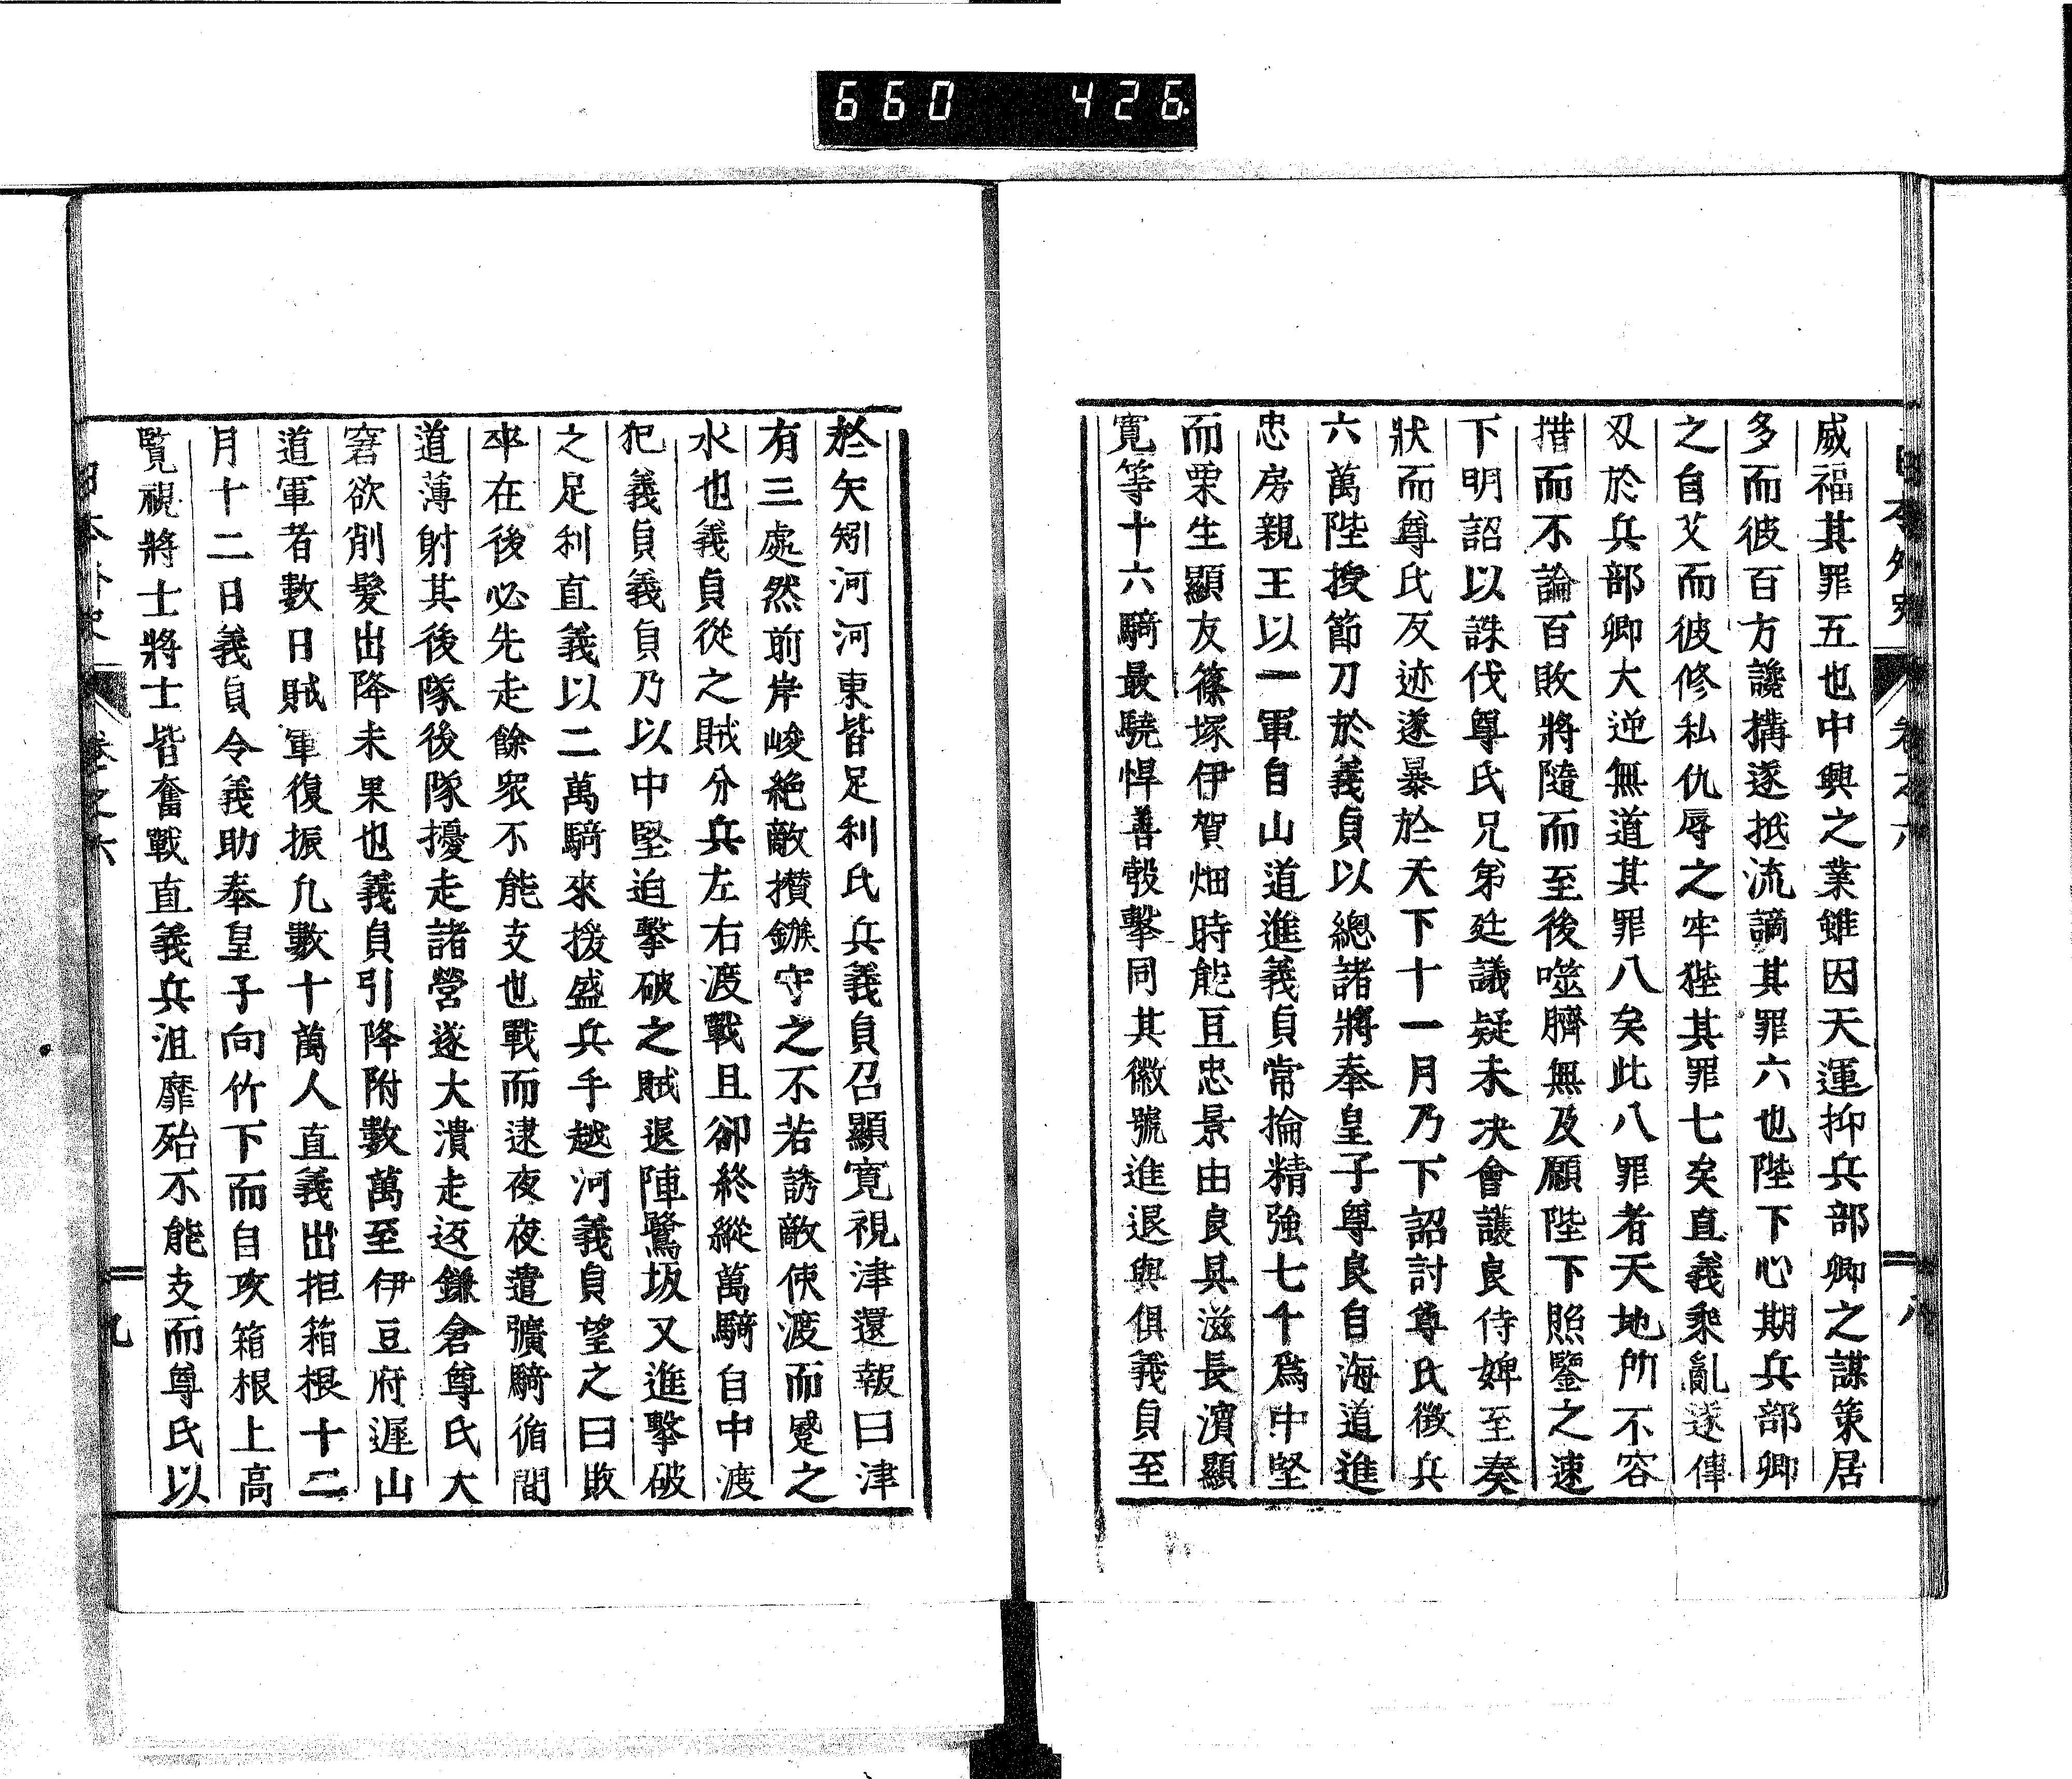 660 426
日本外史 卷之六 八
威福其罪五也中興之業雖因天運抑兵部卿之謀策居
多而彼百方讒搆遂抵流謫其罪六也陛下心期兵部卿
之自艾而彼修私仇辱之牢狴其罪七矣直義乘亂遂倳
刄於兵部卿大逆無道其罪八矣此八罪者天地所不容
措而不論百敗將隨而至後噬臍無及願陛下照鑒之速
下明詔以誅伐尊氏兄弟廷議疑未决會護良侍婢至奏
狀而尊氏反迹遂暴於天下十一月乃下詔討尊氏徴兵
六萬陛授節刀於義貞以總諸將奉皇子尊良自海道進
忠房親王以一軍自山道進義貞常掄精強七千爲中堅
而栗生顯友篠塚伊賀畑時能亘忠景由良具滋長濵顯
寛等十六騎最驍悍善彀擊同其徽號進退與俱義貞至
於矢矧河河東皆足利氏兵義貞召顯寛視津還報曰津
有三處然前岸峻絶敵攅鏃守之不若誘敵使渡而蹙之
水也義貞從之賊分兵左右渡戰且卻終縱萬騎自中渡
犯義貞義貞乃以中堅迫擊破之賊退陣鷺坂又進擊破
之足利直義以二萬騎來援盛兵手越河義貞望之曰敗
卒在後必先走餘衆不能支也戰而逮夜夜遣彍騎循間
道薄射其後隊後隊擾走諸營遂大潰走返鎌倉尊氏大
窘欲削髮出降未果也義貞引降附數萬至伊豆府遲山
道軍者數日賊軍復振凢數十萬人直義出拒箱根十二
月十二日義貞令義助奉皇子向竹下而自攻箱根上高
覧視將士將士皆奮戰直義兵沮靡殆不能支而尊氏以
日本外史 卷之六 九